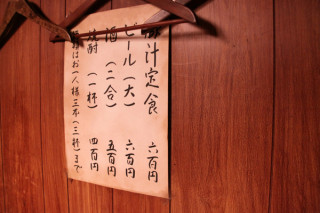 豚汁定食 六百円
ビール（大） 六百円
酒（二合） 五百円
焼酎（一杯） 四百円
酒類はお一人様三本（三杯）まで